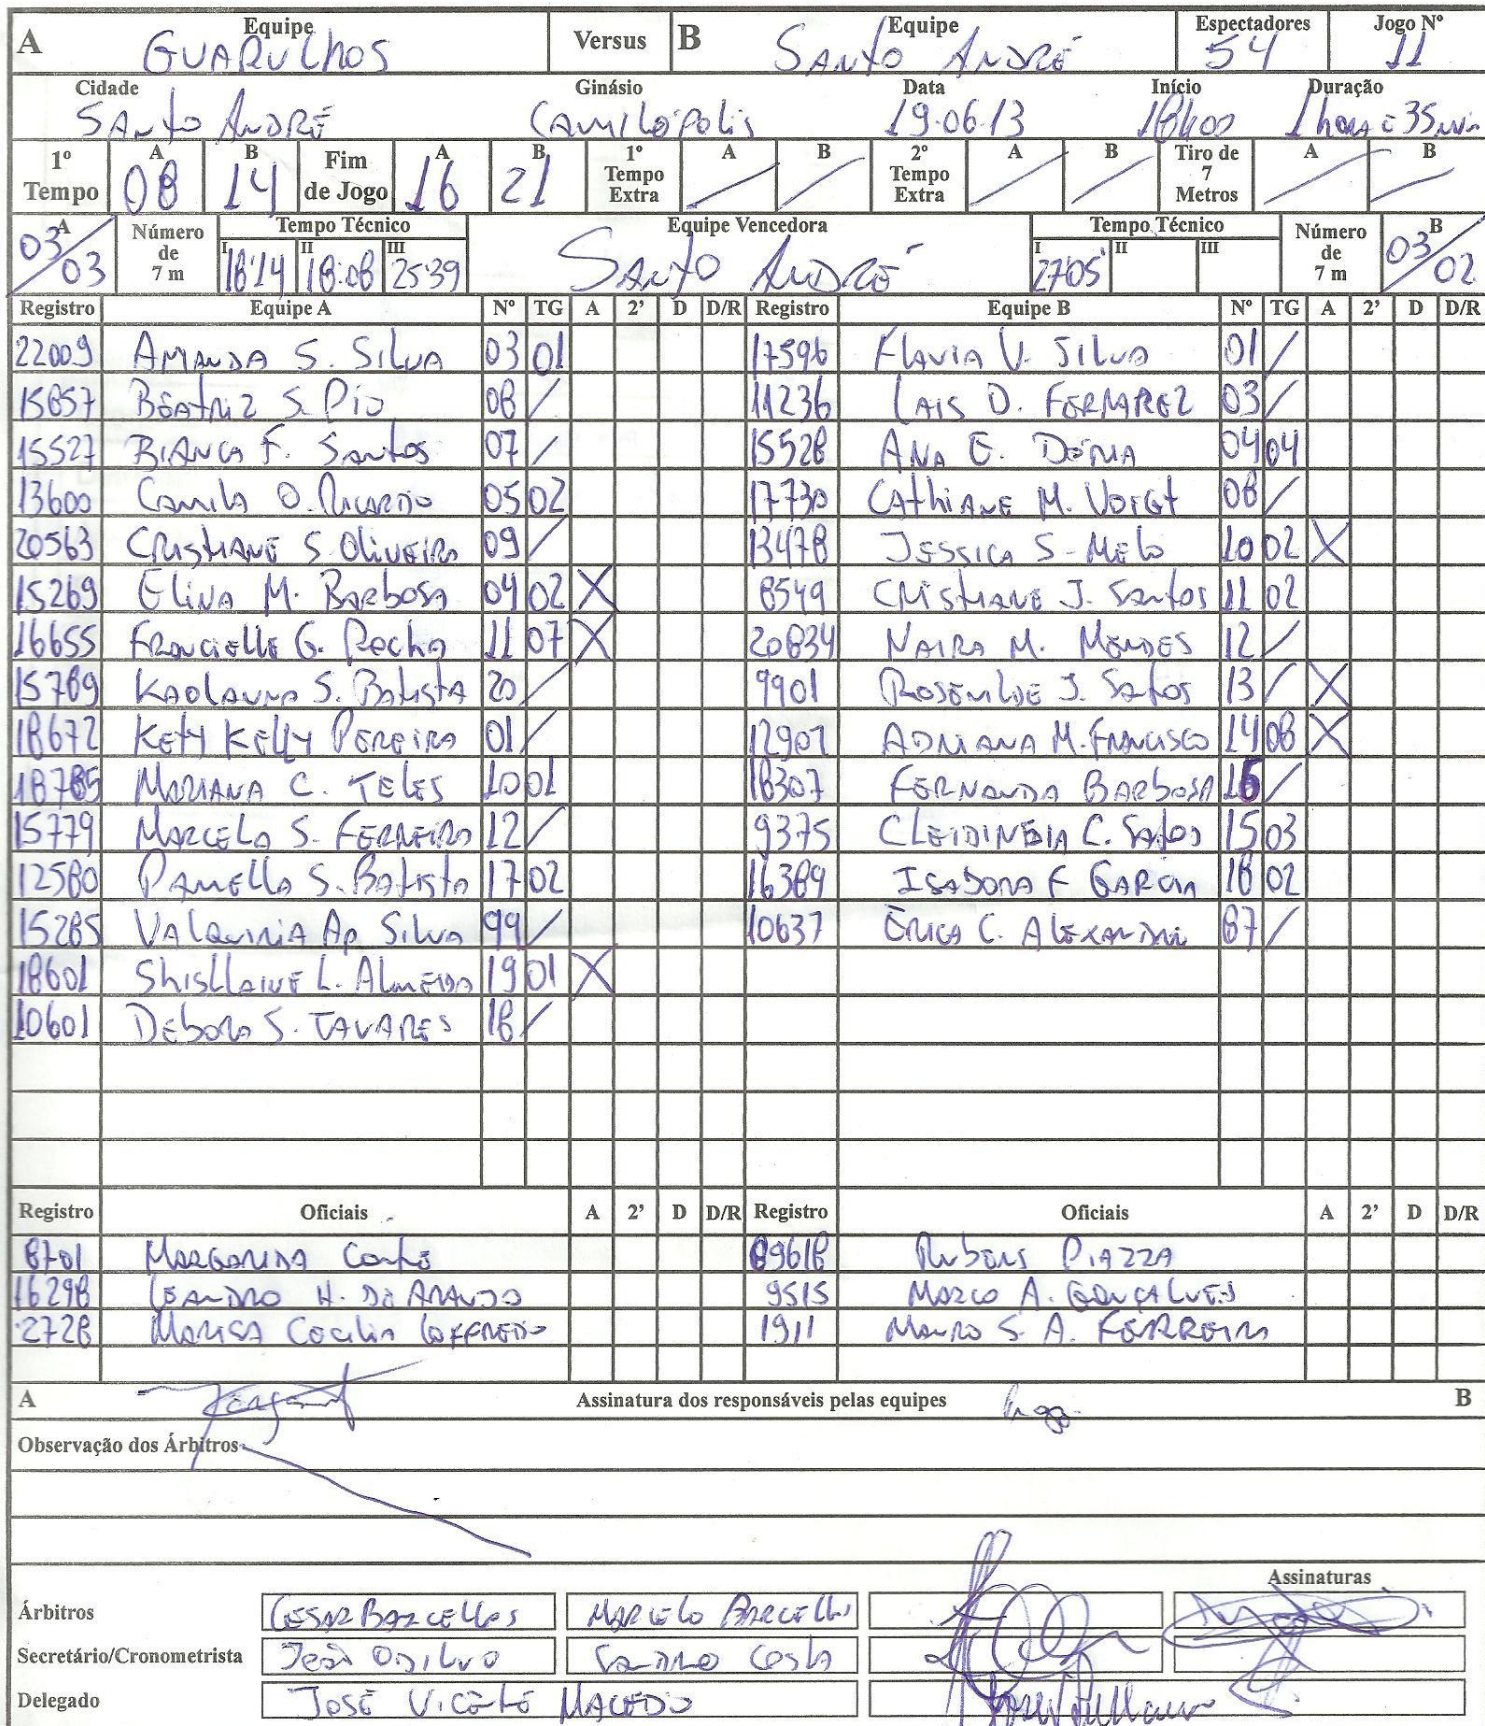 A Equipe GUARULHOS Versus B Equipe SANTO ANDRÉ Espectadores 54 Jogo Nº 11
Cidade SANTO ANDRÉ Ginásio CAMILÓPOLIS Data 19.06.13 Início 18h00 Duração 1 hora e 35 min
1º Tempo A 08 B 14 Fim de Jogo A 16 B 21 1º Tempo Extra A / B / 2º Tempo Extra A / B / Tiro de 7 Metros A / B /
A 03/03 Número de 7 m Tempo Técnico I 18:14 II 18:08 III 25:39 Equipe Vencedora SANTO ANDRÉ Tempo Técnico I 27:05 II III Número de 7 m B 03/02
Registro Equipe A Nº TG A 2' D D/R Registro Equipe B Nº TG A 2' D D/R
22009 AMANDA S. SILVA 03 01 17596 FLAVIA V. SILVA 01 /
15857 BEATRIZ S. PIO 08 / 11236 LAIS D. 03 /
15527 BIANCA F. SANTOS 07 / 15528 ANA E. DÓRIA 04 04
13600 CAMILA O. RICARDO 05 02 17730 CATHIANE M. VOIGT 08 /
20563 CRISTIANE S. OLIVEIRA 09 / 13478 JESSICA S. MELO 10 02 X
15269 ELINA M. BARBOSA 04 02 X 8549 CRISTIANE J. SANTOS 11 02
16655 FRANCIELLE G. ROCHA 11 07 X 20834 NAIRA M. MENDES 12 /
15789 KAOLANNA S. BATISTA 20 / 9901 ROSENILDE J. SANTOS 13 / X
18672 KETY KELLY PEREIRA 01 / 12907 ADRIANA M. FRANCISCO 14 08 X
18785 MARIANA C. TELES 10 01 18307 FERNANDA BARBOSA 16 /
15779 MARCELA S. FERREIRA 12 / 9375 CLEIDINEIA C. SANTOS 15 03
12580 PAMELLA S. BATISTA 17 02 16389 ISADORA F GARCIA 18 02
15285 VALQUIRIA AP. SILVA 99 / 10637 ERICA C. ALEXANDRE 87 /
18601 SHISLLAINE L. ALMEIDA 19 01 X
10601 DEBORA S. TAVARES 18 /
Registro Oficiais A 2' D D/R Registro Oficiais A 2' D D/R
8701 MARGARIDA CONTE 89618 RUBENS PIAZZA
16298 LEANDRO H. DE ARAUJO 9515 MARCO A. GONÇALVES
2728 MARISA CECILIA LOFFREDO 1911 MAURO S. A. FERREIRA
A Assinatura dos responsáveis pelas equipes B
Observação dos Árbitros
Assinaturas
Árbitros CESAR BARCELLOS MARCELO BARCELLOS
Secretário/Cronometrista SANDRO COSTA
Delegado JOSÉ VICENTE MACEDO